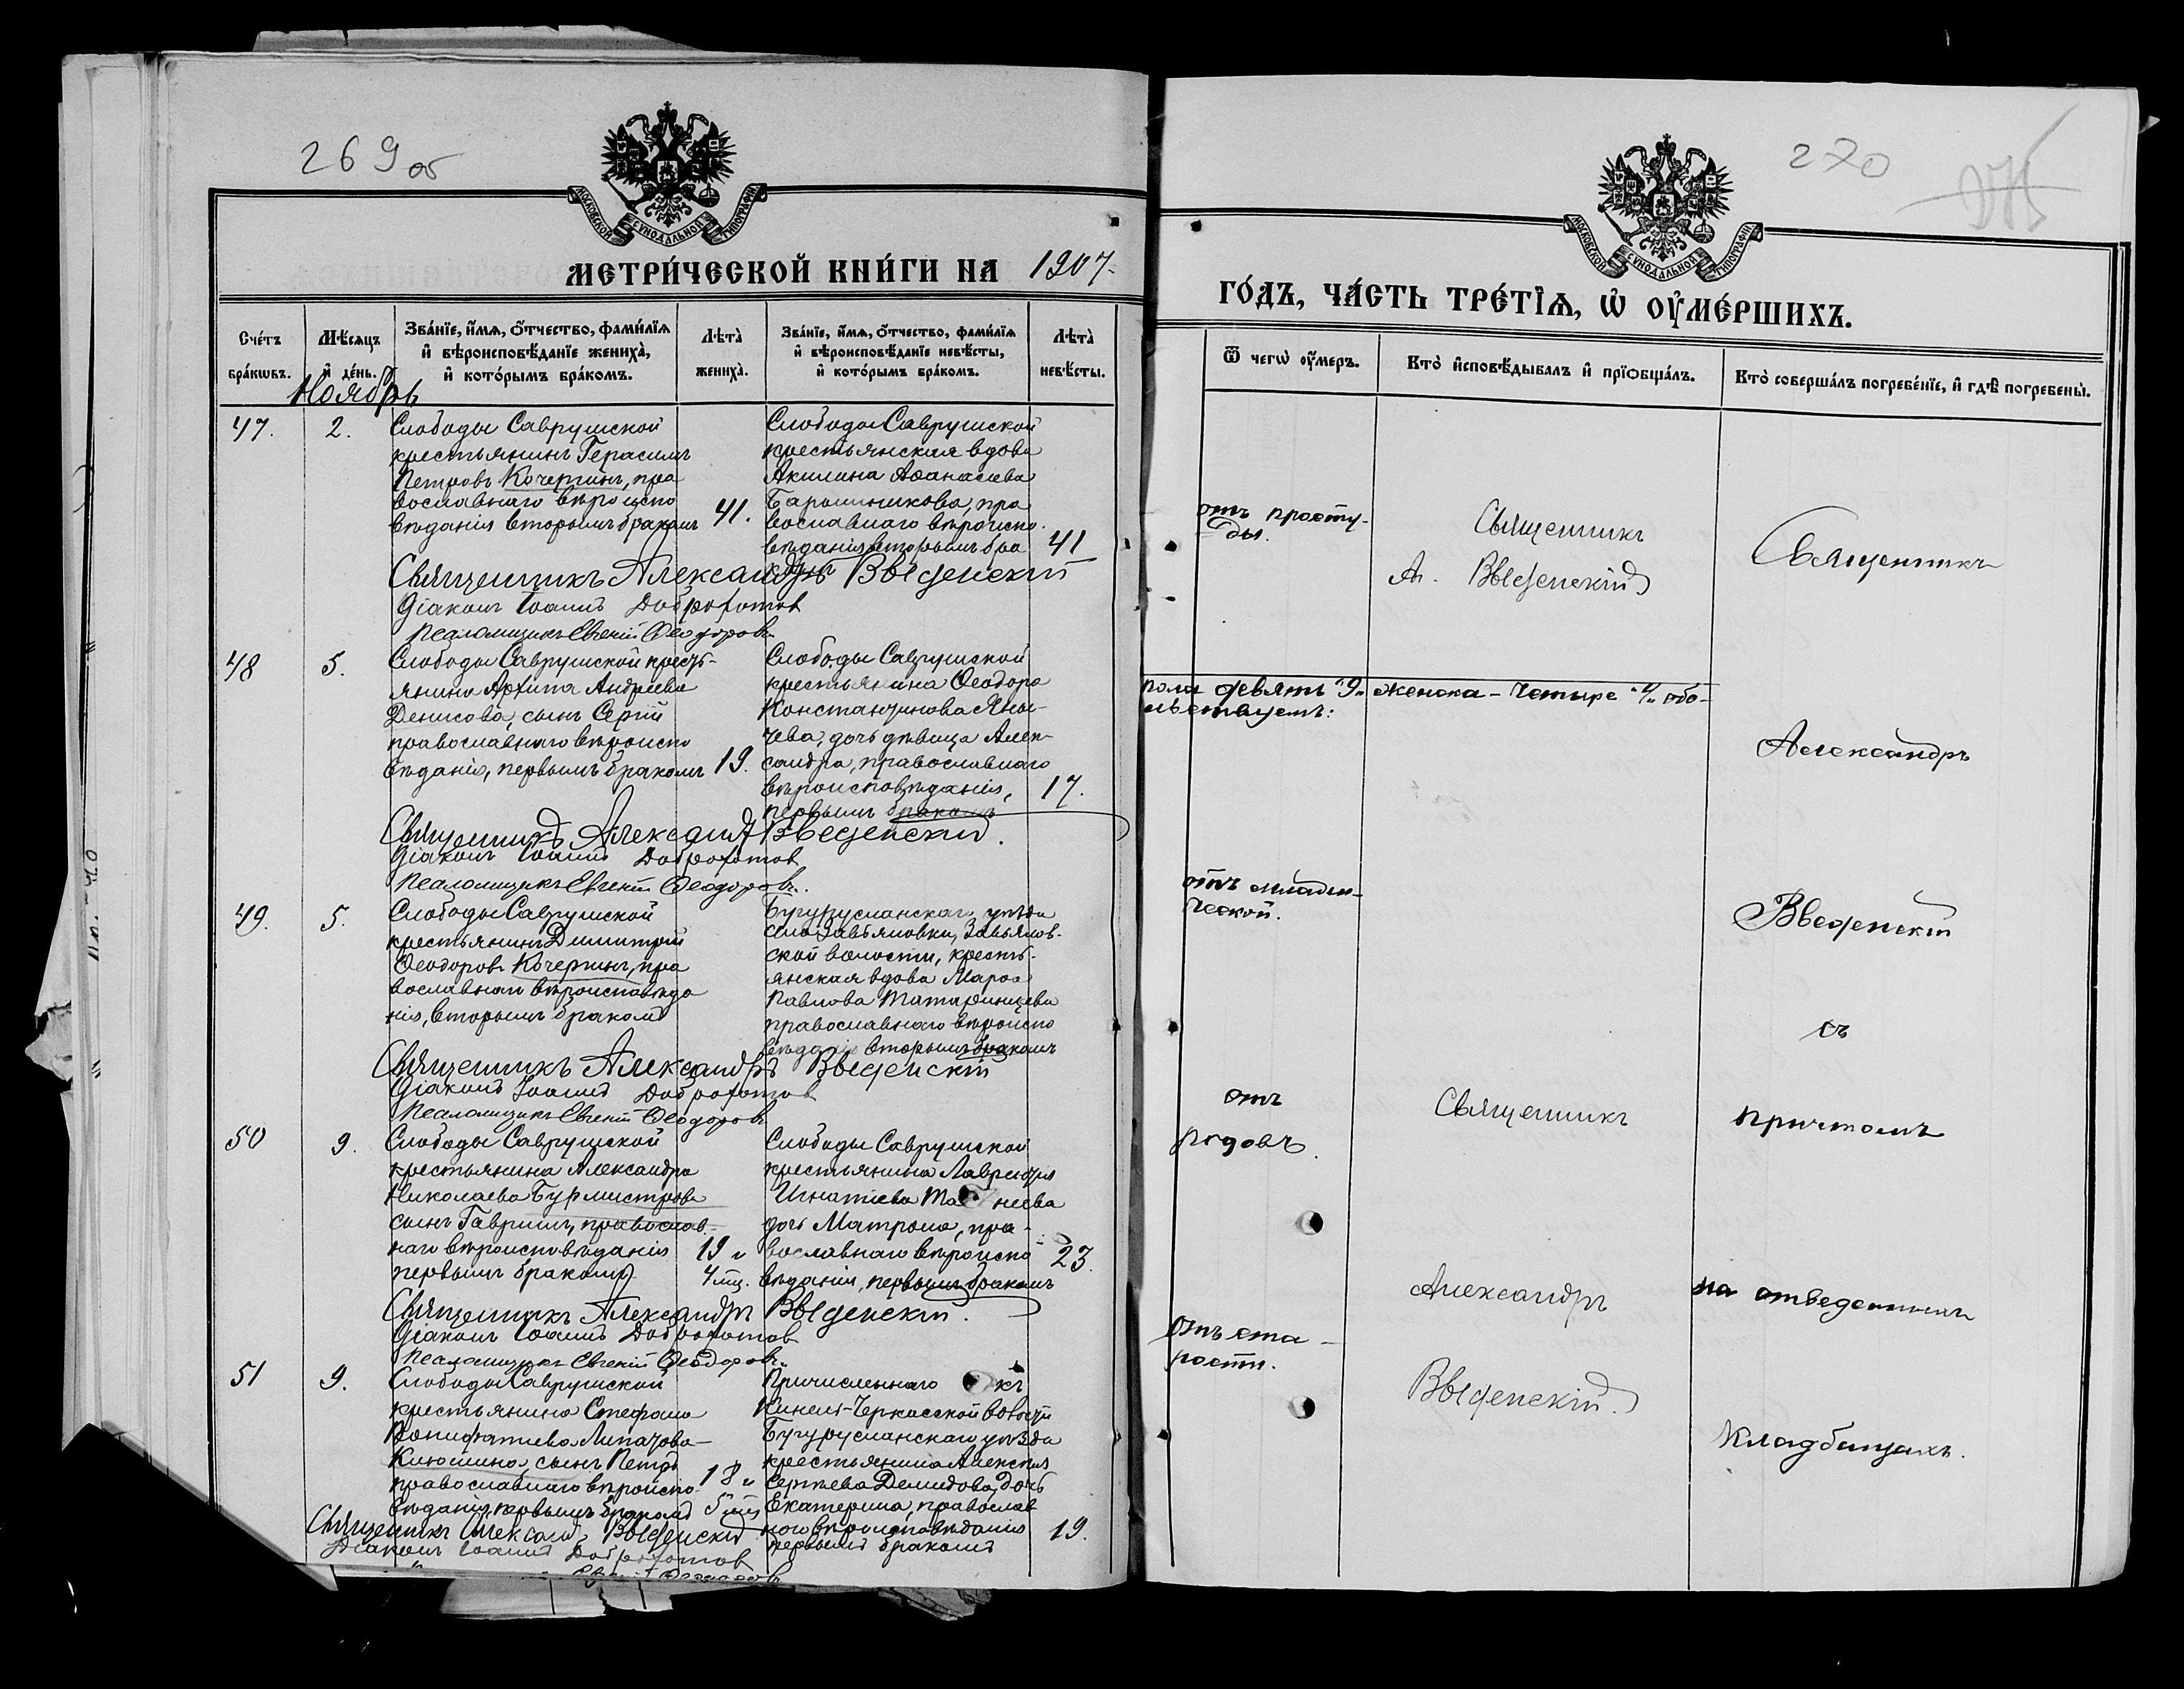 269 об
МОСКОВСКОЙ СѴНОДАЛЬНОЙ ТИПОГРАФІИ
МЕТРИ́ЧЕСКОЙ КНИ́ГИ НА 1907.
Сче́тъ бра́кωвъ.
Мѣ́сяцъ и҆ де́нь.
Зва́нїе, и҆́мѧ, ѻ҆́тчество, фамѝлїѧ и҆ вѣроисповѣ́данїе жениха̀, и҆ кото́рымъ бра́комъ.
Лѣта̀ жениха̀.
Зва́нїе, и҆́мѧ, ѻ҆́тчество, фамѝлїѧ и҆ вѣроисповѣ́данїе невѣ́сты, и҆ кото́рымъ бра́комъ.
Лѣта̀ невѣ́сты.
Ноябрь
47.
2.
Слободы Саврушской
крестьянинъ Герасимъ
Петровъ Кочергинъ, пра
вославнаго вѣроиспо
вѣданія вторымъ бракомъ
41.
Слободы Саврушской
крестьянская вдова
Акилина Аѳанасіева
Барышникова, пра
вославнаго вѣроиспо
вѣданія вторымъ бра
комъ
41
Священникъ Александръ Введенскій
Діаконъ Іоаннъ Доброхотов
Псаломщикъ Евгеній Ѳеодоровъ
48
5.
Слободы Саврушской кресть-
янина Архипа Андреева
Денисова, сынъ Сергій
православнаго вѣроиспо
вѣданія, первымъ бракомъ
19.
Слободы Саврушской
крестьянина Ѳеодора
Константинова Яны-
чева, дочь дѣвица Алек-
сандра, православнаго
вѣроисповѣданія,
первымъ бракомъ
17.
Священникъ Александръ Введенскій.
Діаконъ Іоаннъ Доброхотов
Псаломщикъ Евгеній Ѳеодоровъ.
49.
5.
Слободы Саврушской
крестьянинъ Димитрій
Ѳеодоровъ Кочергинъ, пра
вославнаго вѣроисповѣда
нія, вторымъ бракомъ
Бугурусланскаго уѣзда
села Завьяловки, Завьялов-
ской волости, кресть-
янская вдова Марѳа
Павлова Татаринцева
православнаго вѣроиспо
вѣданія вторымъ бракомъ
Священникъ Александръ Введенскій
Діаконъ Іоаннъ Доброхотов
Псаломщикъ Евгеній Ѳеодоровъ
50
9.
Слободы Саврушской
крестьянина Александра
Николаева Бурмистрова
сынъ Гавріилъ, православ-
наго вѣроисповѣданія
первымъ бракомъ
19 и
4 мц.
Слободы Саврушской
крестьянина Лаврентія
Игнатіева
дочь Матрона, пра-
вославнаго вѣроиспо
вѣданія, первымъ бракомъ
23.
Священникъ Александръ Введенскій.
Діаконъ Іоаннъ Доброхотов
Псаломщикъ Евгеній Ѳеодоровъ.
51
9.
Слободы Саврушской
крестьянина Стефана
Вонифатіева
Клюшина, сынъ Петръ
православнаго вѣроиспо-
вѣданія, первымъ бракомъ
18 и
5 мц
Причисленнаго къ
Кинель-Черкасской волости
Бугурусланскаго уѣзда
крестьянина Алексѣя
Сергѣева Демидова, дочь
Екатерина, православ
наго вѣроисповѣданія
первымъ бракомъ
19.
Священникъ Александръ Введенскій
Діаконъ Іоаннъ Доброхотов
270
МОСКОВСКОЙ СѴНОДАЛЬНОЙ ТИПОГРАФІИ
ГО́ДЪ, ЧА́СТЬ ТРЕ́ТЇѦ, Ѡ҆ ОУ҆МЕ́РШИХЪ.
Ѿ чегѡ̀ оу҆́меръ.
Кто̀ и҆сповѣ́дывалъ и҆ прїѡбща́лъ.
Кто̀ соверша́лъ погребе́нїе, и҆ гдѣ̀ погребены̀.
отъ просту-
ды.
Священникъ
А. Введенскій
пола девять "9" женска - четыре "4" обо-
отъ младен-
ческой.
отъ
родовъ.
отъ ста-
рости.
Священникъ
Александръ
Введенскій.
Священникъ
Александръ
Введенскій
съ
причтомъ
на отведенныхъ
кладбищахъ.